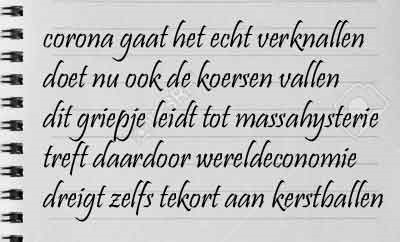 corona gaat het echt verknallen
doet nu ook de koersen vallen
dit griepje leidt tot massahysterie
treft daardoor wereldeconomie
dreigt zelfs tekort aan kerstballen